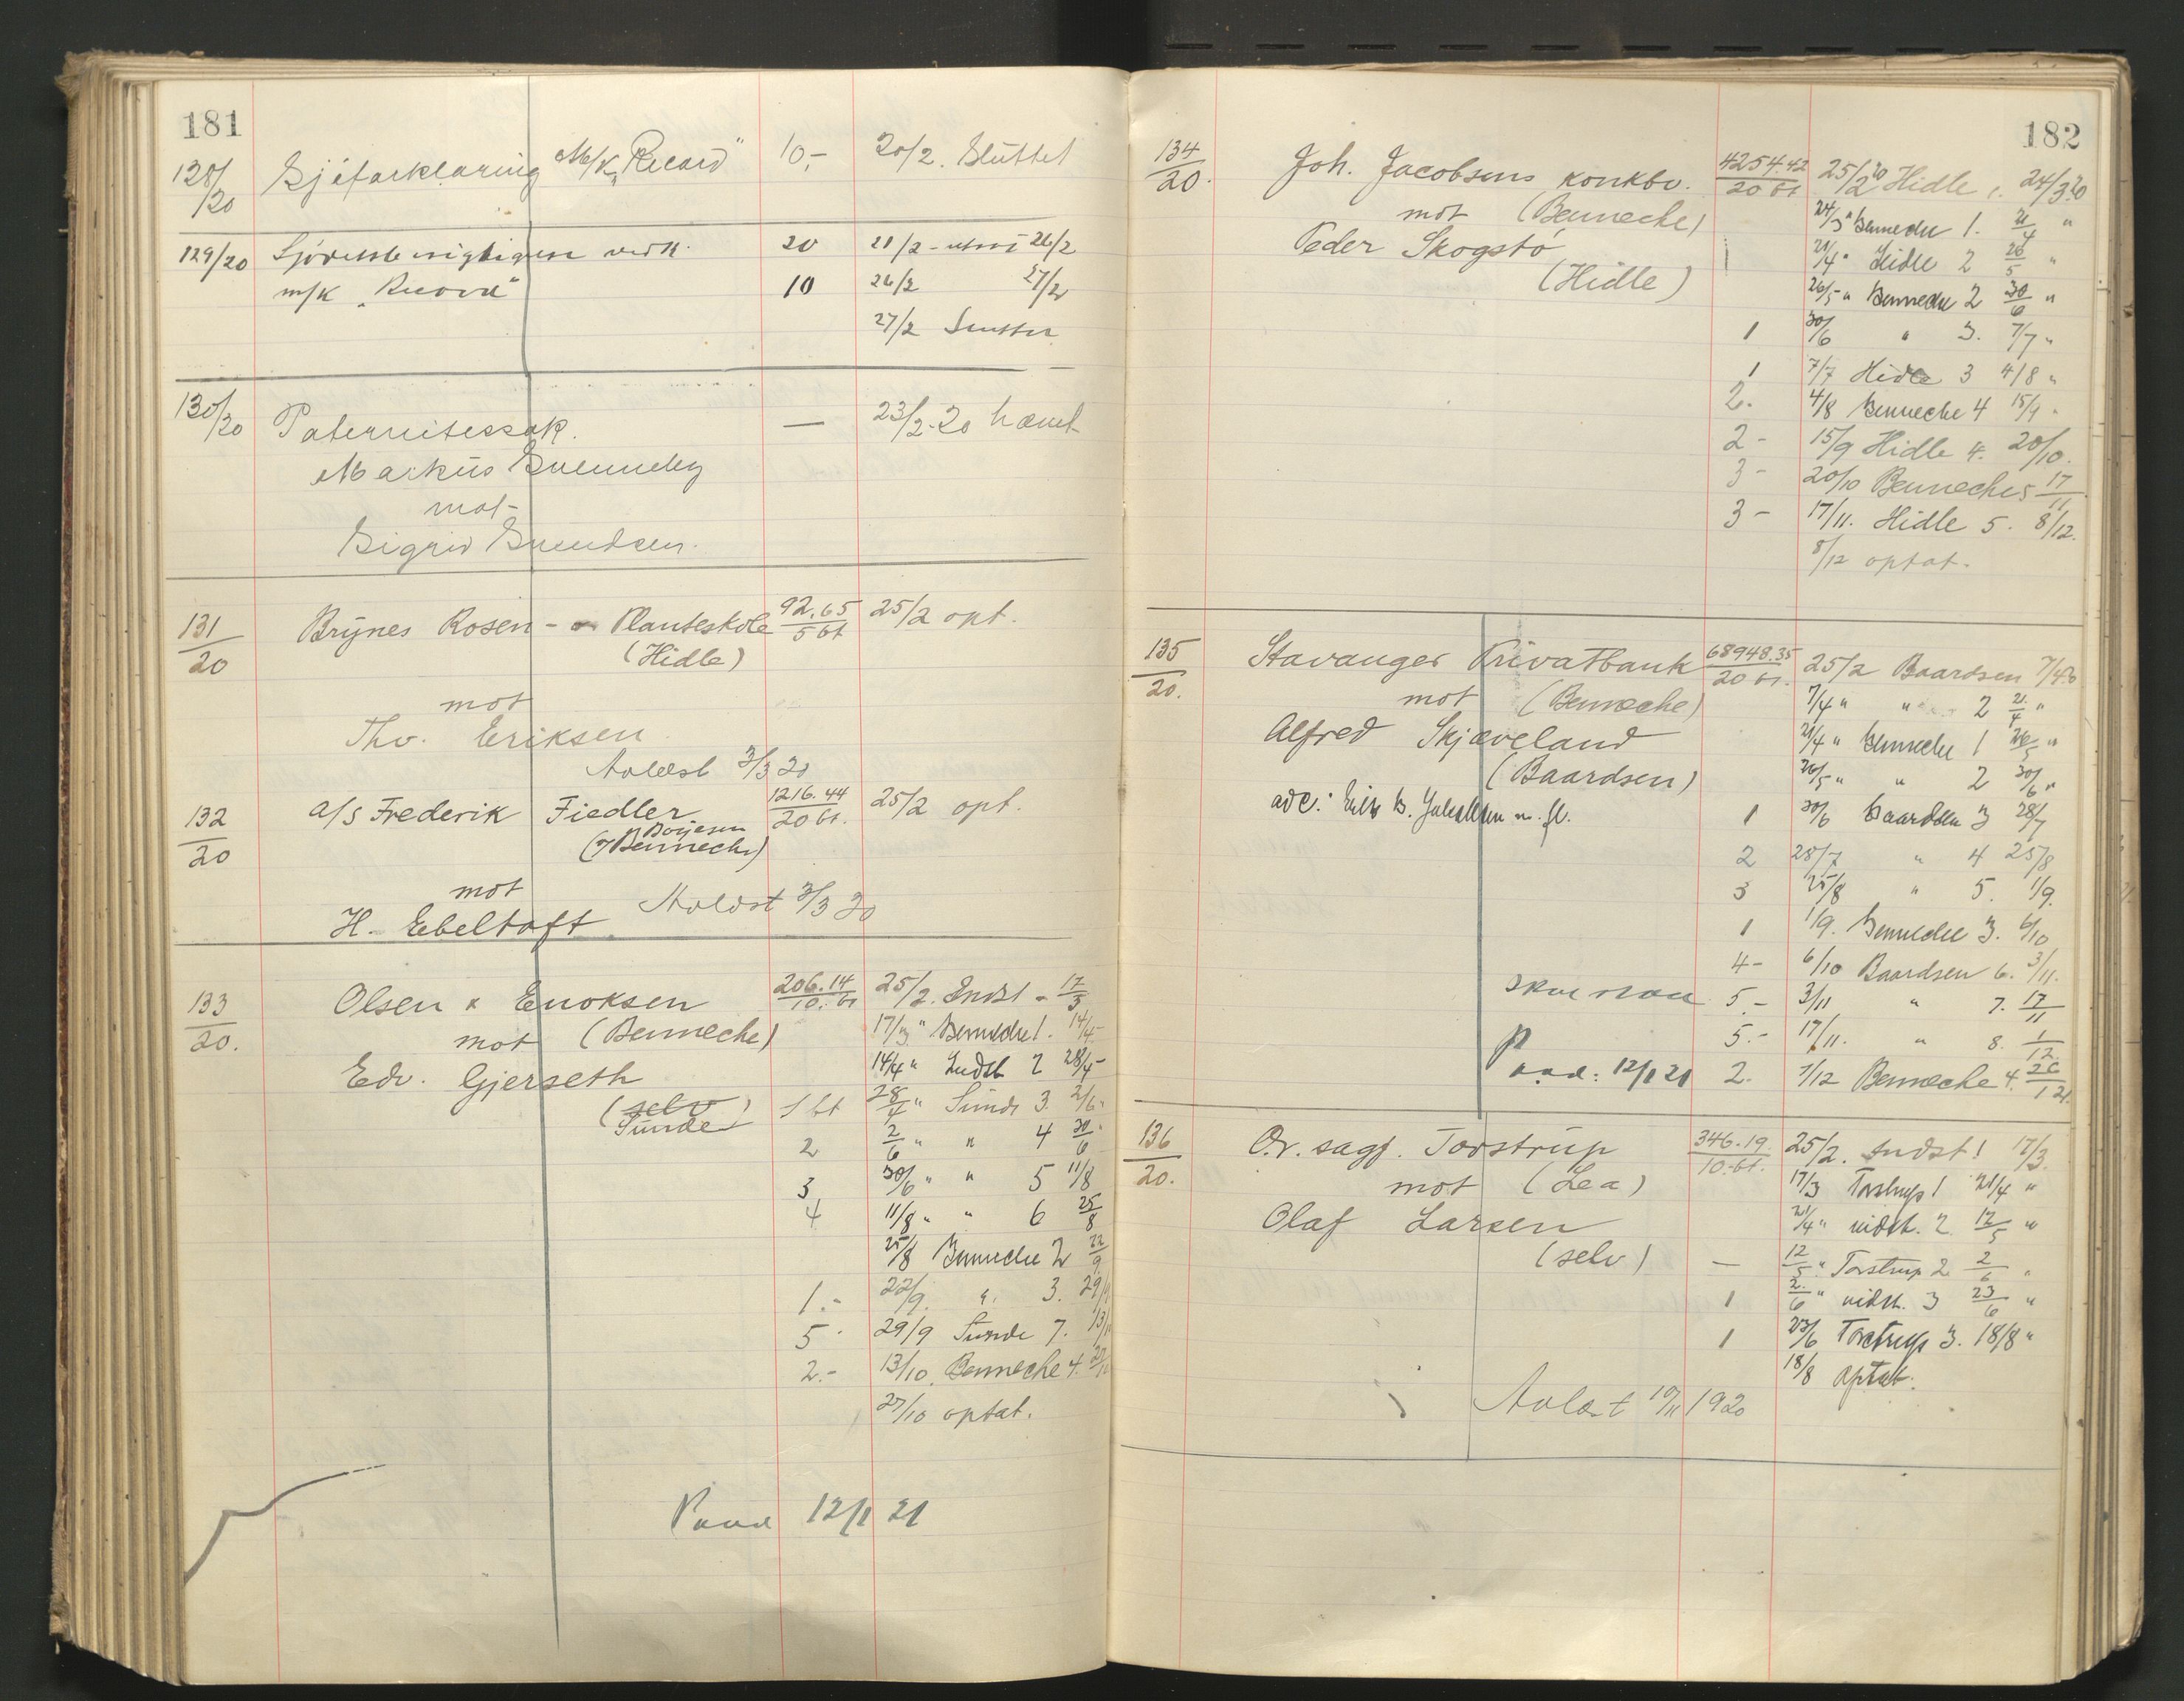 181
128/20 Sjøforklaring M/K "Record" 10,- 20/2. Sluttet
129/20 vedk. 20 21/2 - 26/2
m/k "Record" 10 26/2 27/2
27/2
130/20 Paternitetssak. — 23/2-20 hævet
Markus
mot
Sigrid Svendsen.
131/20 Brynes Rosen- o Planteskole 92.65 / 5 bl 25/2 opt.
(Hidle)
mot
Thv. Eriksen
Avlæst 3/3 20
132/20 A/S Frederik Fiedler 1216.44 / 20 bl. 25/2 opt.
Börjesen
(v/ Benneche)
mot
Avlæst 3/3 20
H. Ebeltoft
133/20. Olsen & Enoksen 206.14 / 10. bl 25/2. Indst - 17/3
mot (Benneche) 17/3 " Benneche 1. 14/4 -
Edv. Gjerseth 14/4 " Indst 2 28/4 -
(selv) 1 bl 28/4 " Sunde 3. 2/6 "
Sunde
2 2/6 " " 4 30/6 "
3 30/6 " " 5 11/8
4 11/8 " " 6 25/8
25/8 Benneche 2 22/9
1.- 22/9. " 3. 29/9
5 - 29/9 Sunde 7. 13/10
2.- 13/10. Benneche 4. 27/10
27/10 optat.
Paad 12/1 21
182
134/20. Joh. Jacobsens konkbo. 4254.42 / 20 bl 25/2 20 Hidle 1. 24/3 20
mot (Benneche) 24/3 " Benneche 1. 21/4 "
Peder Skogstø 21/4 " Hidle 2 26/5 "
(Hidle) 26/5 " Benneche 2 30/6 "
1 30/6 " 3. 7/7 "
1 7/7 Hidle 3 4/8 "
2. 4/8 Benneche 4 15/9 "
2 - 15/9 Hidle 4. 20/10.
3 - 20/10 Benneche 5 17/11
3 - 17/11. Hidle 5. 8/12.
8/12 optat.
135/20. Stavanger Privatbank 68948.35 / 20 bl. 25/2 Baardsen 7/4 20
mot (Benneche) 7/4 " " 2 21/4 "
Alfred Skjæveland 21/4 " Benneche 1 26/5 "
(Baardsen) 26/5 " " 2 30/6 "
adc: m. fl. 1 30/6 Baardsen 3 28/7
2 28/7 " 4 25/8
3 25/8 " 5. 1/9.
1 1/9. Benneche 3. 6/10
4 - 6/10 Baardsen 6. 3/11.
5.- 3/11 " 7. 17/11
5.- 17/11. " 8. 1/12.
Paad: 12/1 21 2. 1/12 Benneche 4. 26/1 21.
136/20. O.r. sagf. Torstrup 346.19. / 10.-bl. 25/2. Indst 1 17/3.
mot (Lea) 17/3 Torstrup 1 21/4 "
Olaf Larsen 21/4 " indst. 2. 12/5 "
(selv) — 12/5 " Torstrup 2 2/6 "
1 2/6 " indst. 3 23/6 "
1 23/6 Torstrup 3. 18/8 "
18/8 optat.
Avlæst 10/11 1920